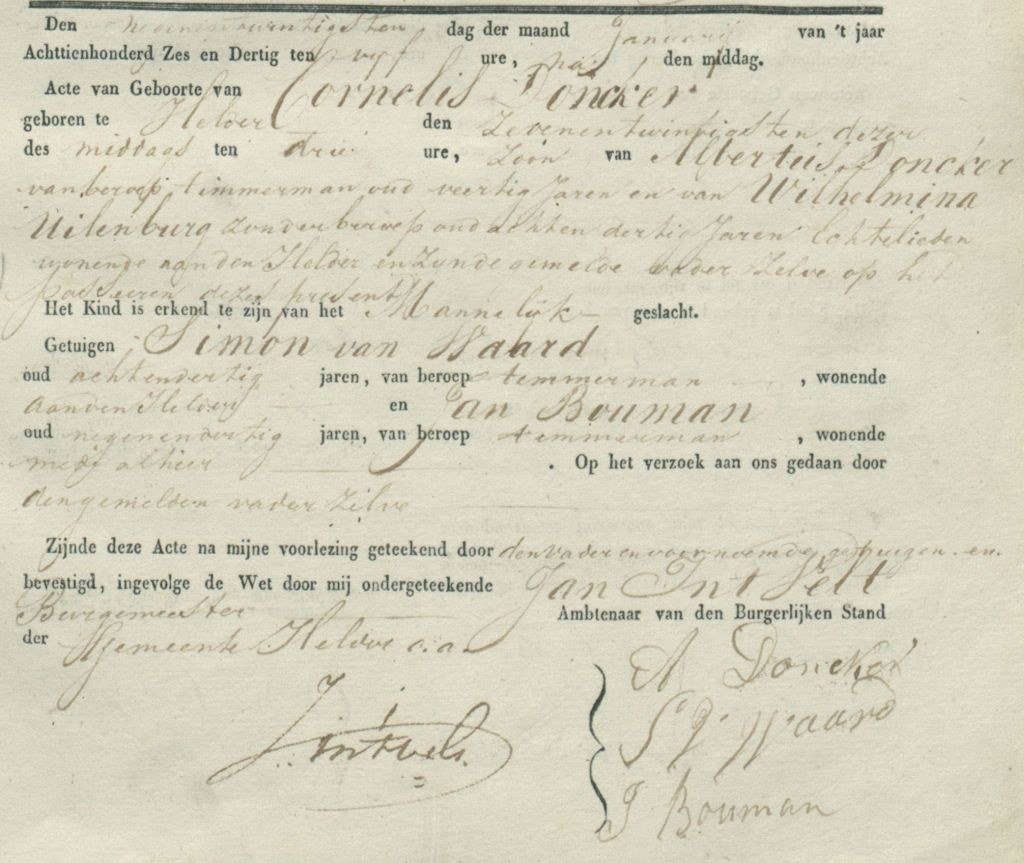 Den negenentwintigsten dag der maand Januarij van 't jaar
Achttienhonderd Zes en Dertig ten vijf ure, na den middag.
Acte van Geboorte van Cornelis Doncker
geboren te Helder den Zevenentwintigsten dezer
des middags ten drie ure, Zoon van Albertus Doncker
van beroep timmerman oud veertig Jaren en van Wilhelmina
Uilenburg zonder beroep oud achten dertig Jaren Echtelieden
wonende aanden Helder en Zijnde gemelde vader Zelve op het
passeeren dezes present
Het Kind is erkend te zijn van het Mannelijk geslacht.
Getuigen Simon van Waard
oud achtendertig jaren, van beroep temmerman , wonende
aanden Helder en Jan Bouman
oud negenendertig jaren, van beroep temmerman , wonende
mede alhier . Op het verzoek aan ons gedaan door
den gemelden vader Zelve
Zijnde deze Acte na mijne voorlezing geteekend door den vader en voornoemde getuigen en
bevestigd, ingevolge de Wet door mij ondergeteekende Jan In't Velt
Burgemeester Ambtenaar van den Burgerlijken Stand
der Gemeente Helder c.a.
A Doncker
S V Waard
J. in't velt
J Bouman